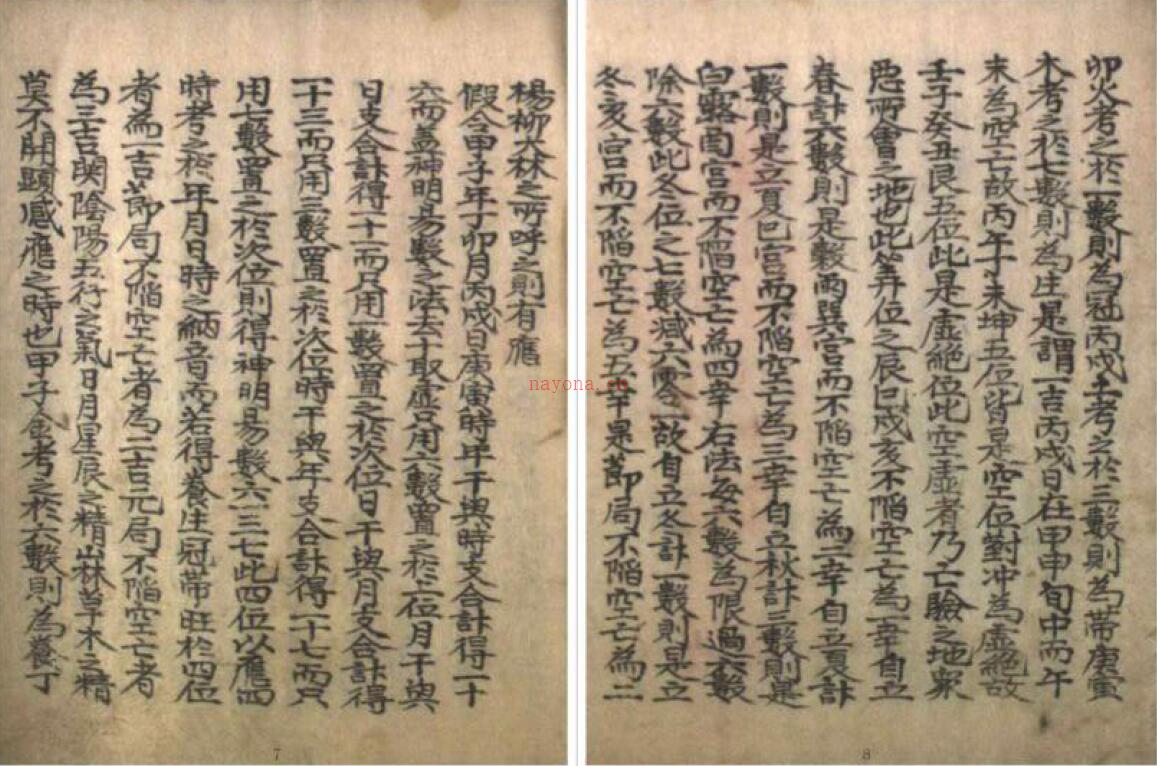 楊柳大林之所呼之則有應
假令甲子年丁卯月丙戌日庚寅時年干與時支合計得一十
六而盖神明易數之法去十取應只用六數置之於上位月干與
日支合計得二十一而只用一數置之於次位日干與月支合計得
一十三而只用三數置之於次位時干與年支合計得一十七而只
用七數置之於次位則得神明易數六三七此四位以應四
時考之於年月日時之納音而若得養生冠帶旺於四位
者為一吉節局不陷空亡者為二吉元局不陷空亡者
為三吉関陰陽五行之氣日月星辰之精山林草木之精
莫不開顯感應之時也甲子金考之於六數則為養丁
7
卯火考之於一數則為冠丙戌土考之於三數則為帶庚寅
木考之於七數則為生是謂一吉丙戌日在甲申旬中而午
未為空亡故丙午丁未坤五局皆是空位對冲為虛絕故
壬子癸丑艮五位此是虛絕位此空虛者乃亡驗之地眾
恶所會之地也此筭位之辰巳戌亥不陷空亡為一幸自立
春計六數則是穀雨巽宮而不陷空亡為二幸自立夏計
一數則是立夏巳宮而不陷空亡為三幸自立秋計三數則是
白露酉宮而不陷空亡為四幸右法每六數為限過六數
除六數此冬位之七數減六零一故自立冬計一數則是立
冬亥宮而不陷空亡為五幸是節局不陷空亡為二
8